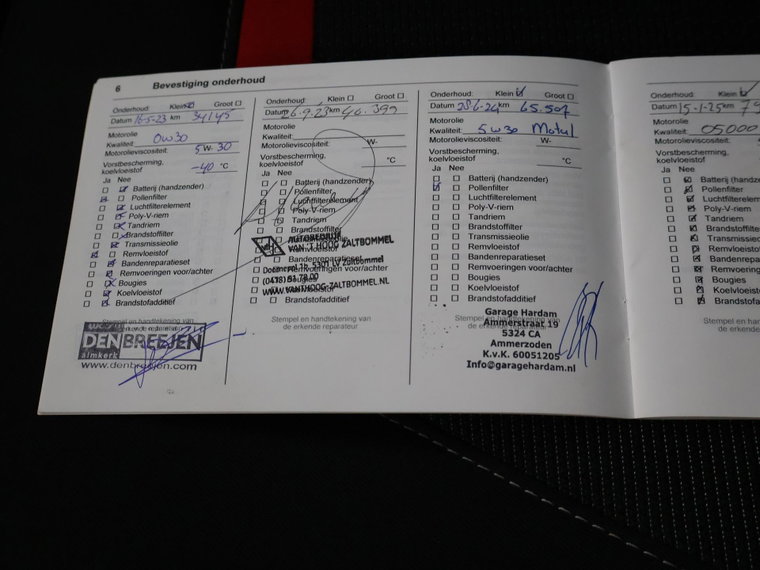 6 Bevestiging onderhoud
Onderhoud: Klein ☑ Groot ☐
Datum 16-5-23 km 34145
Motorolie
Kwaliteit: 0w30
Motorolieviscositeit: 5 W- 30
Vorstbescherming,
koelvloeistof -40 °C
Ja Nee
Batterij (handzender)
Pollenfilter
Luchtfilterelement
Poly-V-riem
Tandriem
Brandstoffilter
Transmissieolie
Remvloeistof
Bandenreparatieset
Remvoeringen voor/achter
Bougies
Koelvloeistof
Brandstofadditief
Stempel en handtekening van
de erkende reparateur
DENBREEJEN
almkerk
www.denbreejen.com
Onderhoud: Klein ☐ Groot ☐
Datum 26-9-23 km 40.399
Motorolie
Kwaliteit:
Motorolieviscositeit: W-
Vorstbescherming,
koelvloeistof °C
Ja Nee
Batterij (handzender)
Pollenfilter
Luchtfilterelement
Poly-V-riem
Tandriem
Brandstoffilter
AUTOBEDRIJF
VAN 'T HOOG ZALTBOMMEL
Bandenreparatieset
5301 LV Zaltbommel
Remvoeringen voor/achter
(0418) 51.78.00
Bougies
WWW.VANTHOOG-ZALTBOMMEL.NL
Brandstofadditief
Stempel en handtekening van
de erkende reparateur
Onderhoud: Klein ☑ Groot ☐
Datum 28-6-24 km 65.507
Motorolie
Kwaliteit: 5w30 Motul
Motorolieviscositeit: W-
Vorstbescherming,
koelvloeistof °C
Ja Nee
Batterij (handzender)
Pollenfilter
Luchtfilterelement
Poly-V-riem
Tandriem
Brandstoffilter
Transmissieolie
Remvloeistof
Bandenreparatieset
Remvoeringen voor/achter
Bougies
Koelvloeistof
Brandstofadditief
Stempel en handtekening van
de erkende reparateur
Garage Hardam
Ammerstraat 19
5324 CA
Ammerzoden
K.v.K. 60051205
Info@garagehardam.nl
Onderhoud: Klein ☑
Datum 15-1-25 km 79
Motorolie
Kwaliteit: 05000
Motorolieviscositeit:
Vorstbescherming,
koelvloeistof
Ja Nee
Batterij (handze
Pollenfilter
Luchtfilterelem
Poly-V-riem
Tandriem
Brandstoffilter
Transmissieolie
Remvloeistof
Bandenreparat
Remvoeringen
Bougies
Koelvloeistof
Brandstofaddit
Stempel en handte
de erkende re